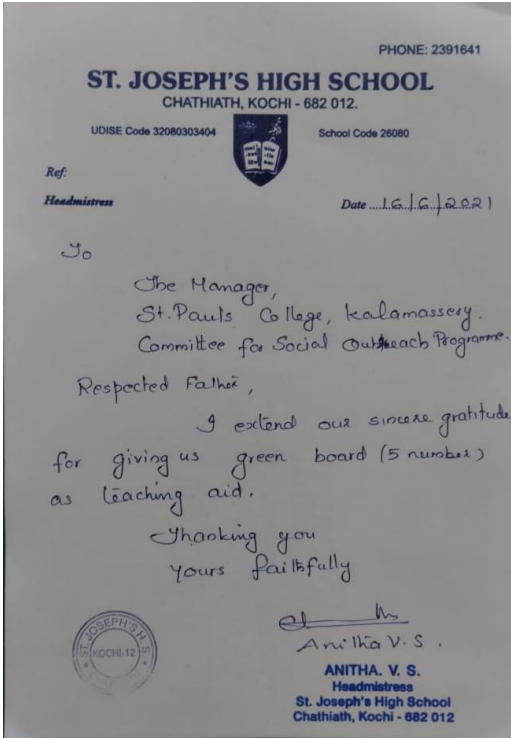 PHONE: 2391641
ST. JOSEPH'S HIGH SCHOOL
CHATHIATH, KOCHI - 682 012.
UDISE Code 32080303404
School Code 26080
Ref:
Headmistress
Date ....16/6/2021
To
The Manager,
St. Pauls College, Kalamassery.
Committee for Social Outreach Programme.
Respected Father,
I extend our sincere gratitude
for giving us green board (5 number)
as teaching aid.
Thanking you
Yours faithfully
Anitha V. S.
ST. JOSEPH'S H. S.
KOCHI-12
ANITHA. V. S.
Headmistress
St. Joseph's High School
Chathiath, Kochi - 682 012